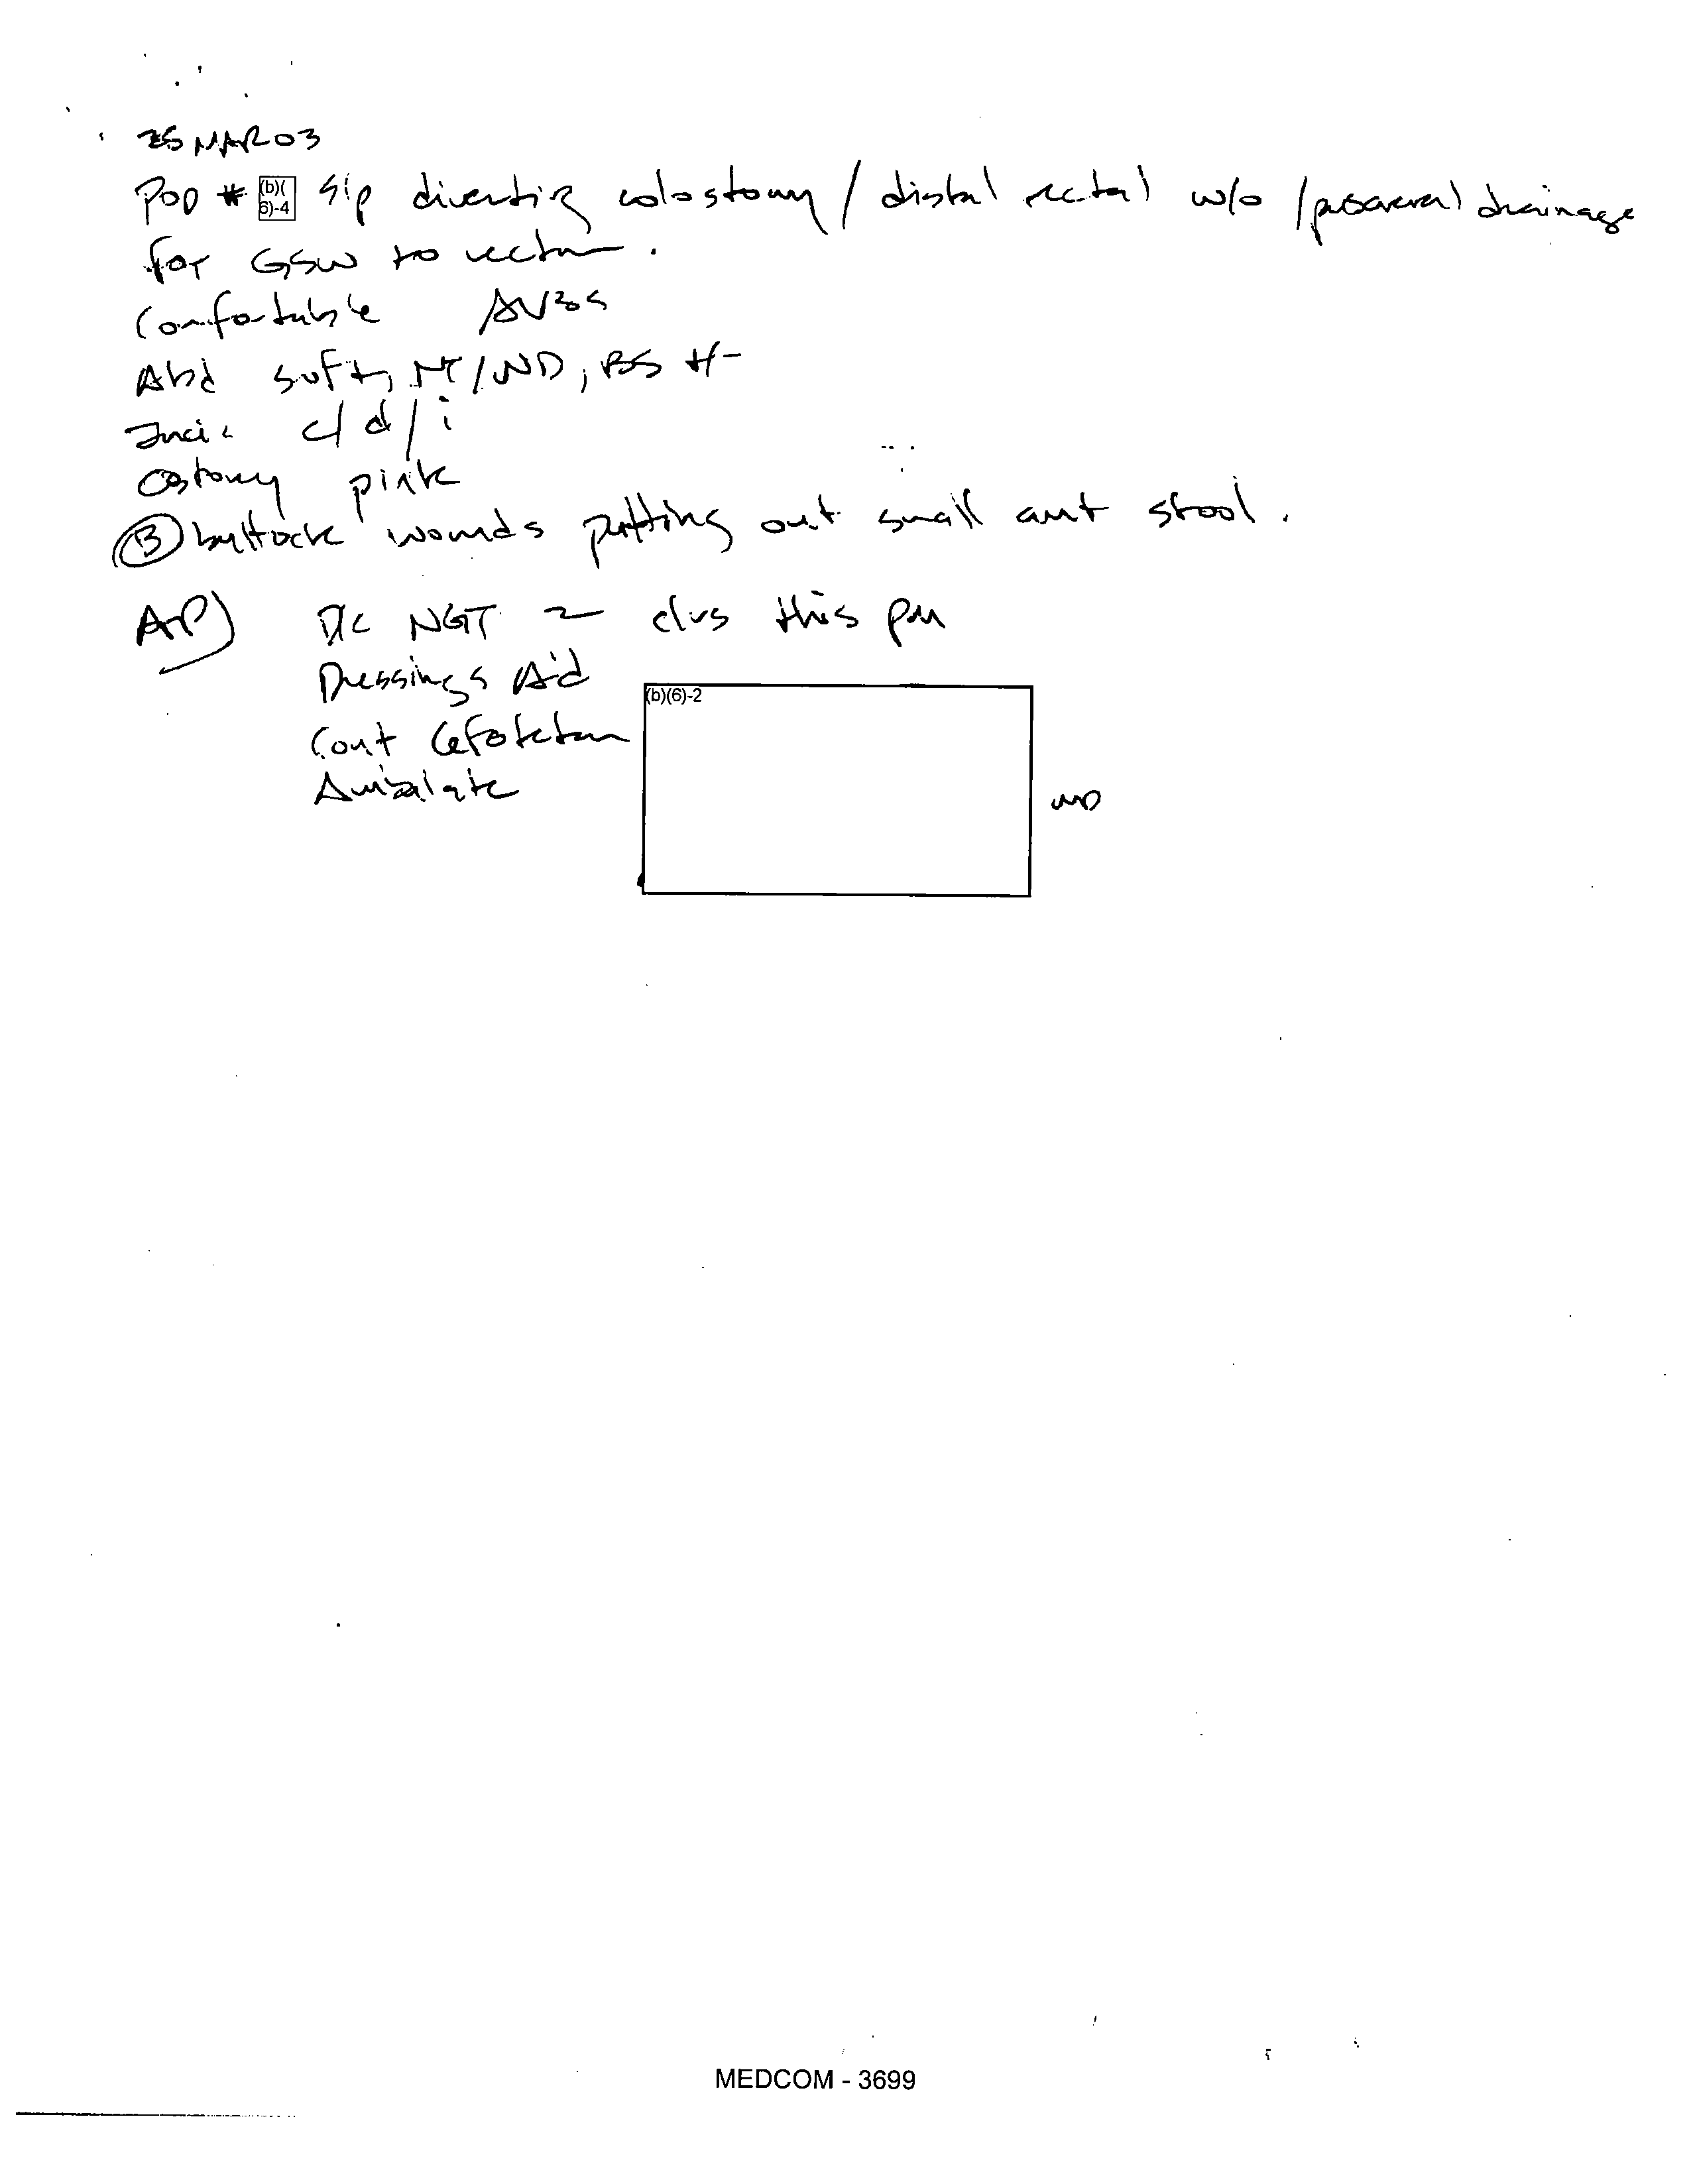 25 MAR 03
POD # (b)(6)-4 s/p diverting colostomy / distal rectal w/o / presacral drainage
for GSW to rectum.
Comfortable AVSS
Abd soft, NT/ND, BS +/-
Incis c/d/i
Ostomy pink
(B) buttock wounds putting out small amt stool.
A/P) D/C NGT clrs this pm
Dressings
(b)(6)-2
Cont Cefotetan
Ambulate
MD
MEDCOM - 3699